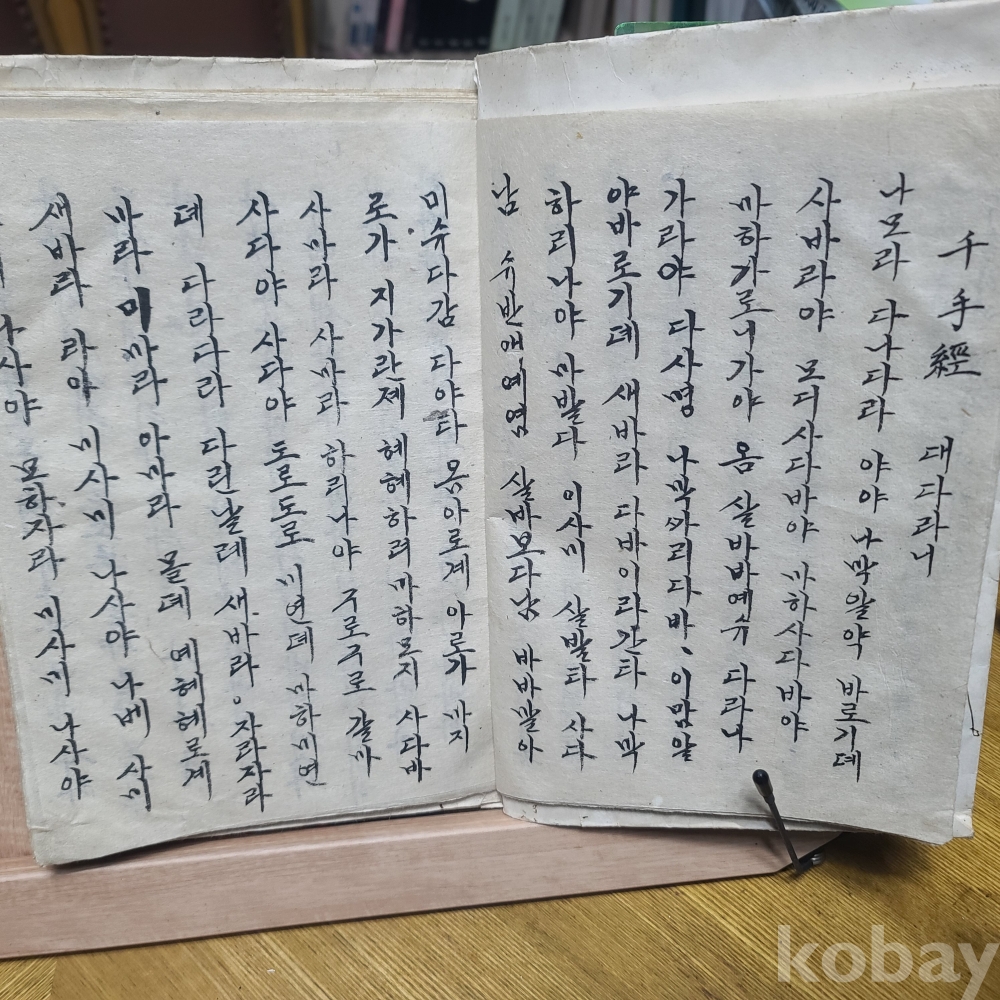 千手經 대다라니
나모라 다나다라 야야 나막알약 바로기뎨
사바라야 모디 사다바야 마하사다바야
마하가로니가야 옴 살바바예슈 다라나
가라야 다사명 나막싸리다바、이맘알
야바로기뎨 새바라 다바이라간타 나막
하리나야 마발다 이사미 살발타 사다
남 슈반애예염 살바보다남 바바말아
미슈다감 다야타 옴아로계 아로가 마지
로가 지가란졔 혜혜하려 마하모지 사다바
사마라 사마라 하리나야 구로구로 갈마
사다야 사다야 도로도로 미연뎨 마하미연
뎨 다라다라 다린날례 새바라。자라자라
마라 미마라 아마라 몰뎨 예혜혜로계
새바라 라아 미사미 나사야 나베 사미
사미 나사야 모하자라 미사미 나사야
kobay